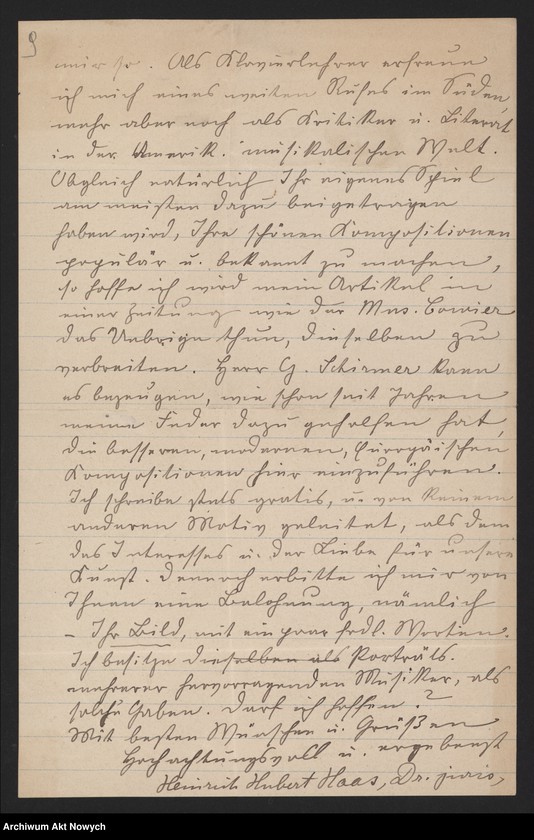 9
mir so. Als Klavierlehrer erfreue
ich mich eines weiten Rufes im Süden
mehr aber noch als Kritiker u. Literat
in der Amerik. musikalischen Welt.
Obgleich natürlich Ihr eigenes Spiel
am meisten dazu beigetragen
haben wird, Ihre schönen Kompositionen
populär u. bekannt zu machen,
so hoffe ich wird mein Artikel in
einer Zeitung wie der Mus. Courier
das Uebrige thun, dieselben zu
verbreiten. Herr G. Schirmer kann
es bezeugen, wie schon seit Jahren
meine Feder dazu geholfen hat,
die besseren, modernen, Europäischen
Kompositionen hier einzuführen.
Ich schreibe stets gratis, u. von keinem
anderen Motiv geleitet, als dem
des Interesses u. der Liebe für unsere
Kunst. Dennoch erbitte ich mir von
Ihnen eine Belohnung, nämlich
– Ihr Bild, mit ein paar frdl. Worten.
Ich besitze dieselben als Porträts.
mehrerer hervorragenden Musiker, als
solche Gaben. Darf ich hoffen?
Mit besten Wünschen u. Grüßen
Hochachtungsvoll u. ergebenst
Heinrich Hubert Haas, Dr. juris,
Archiwum Akt Nowych